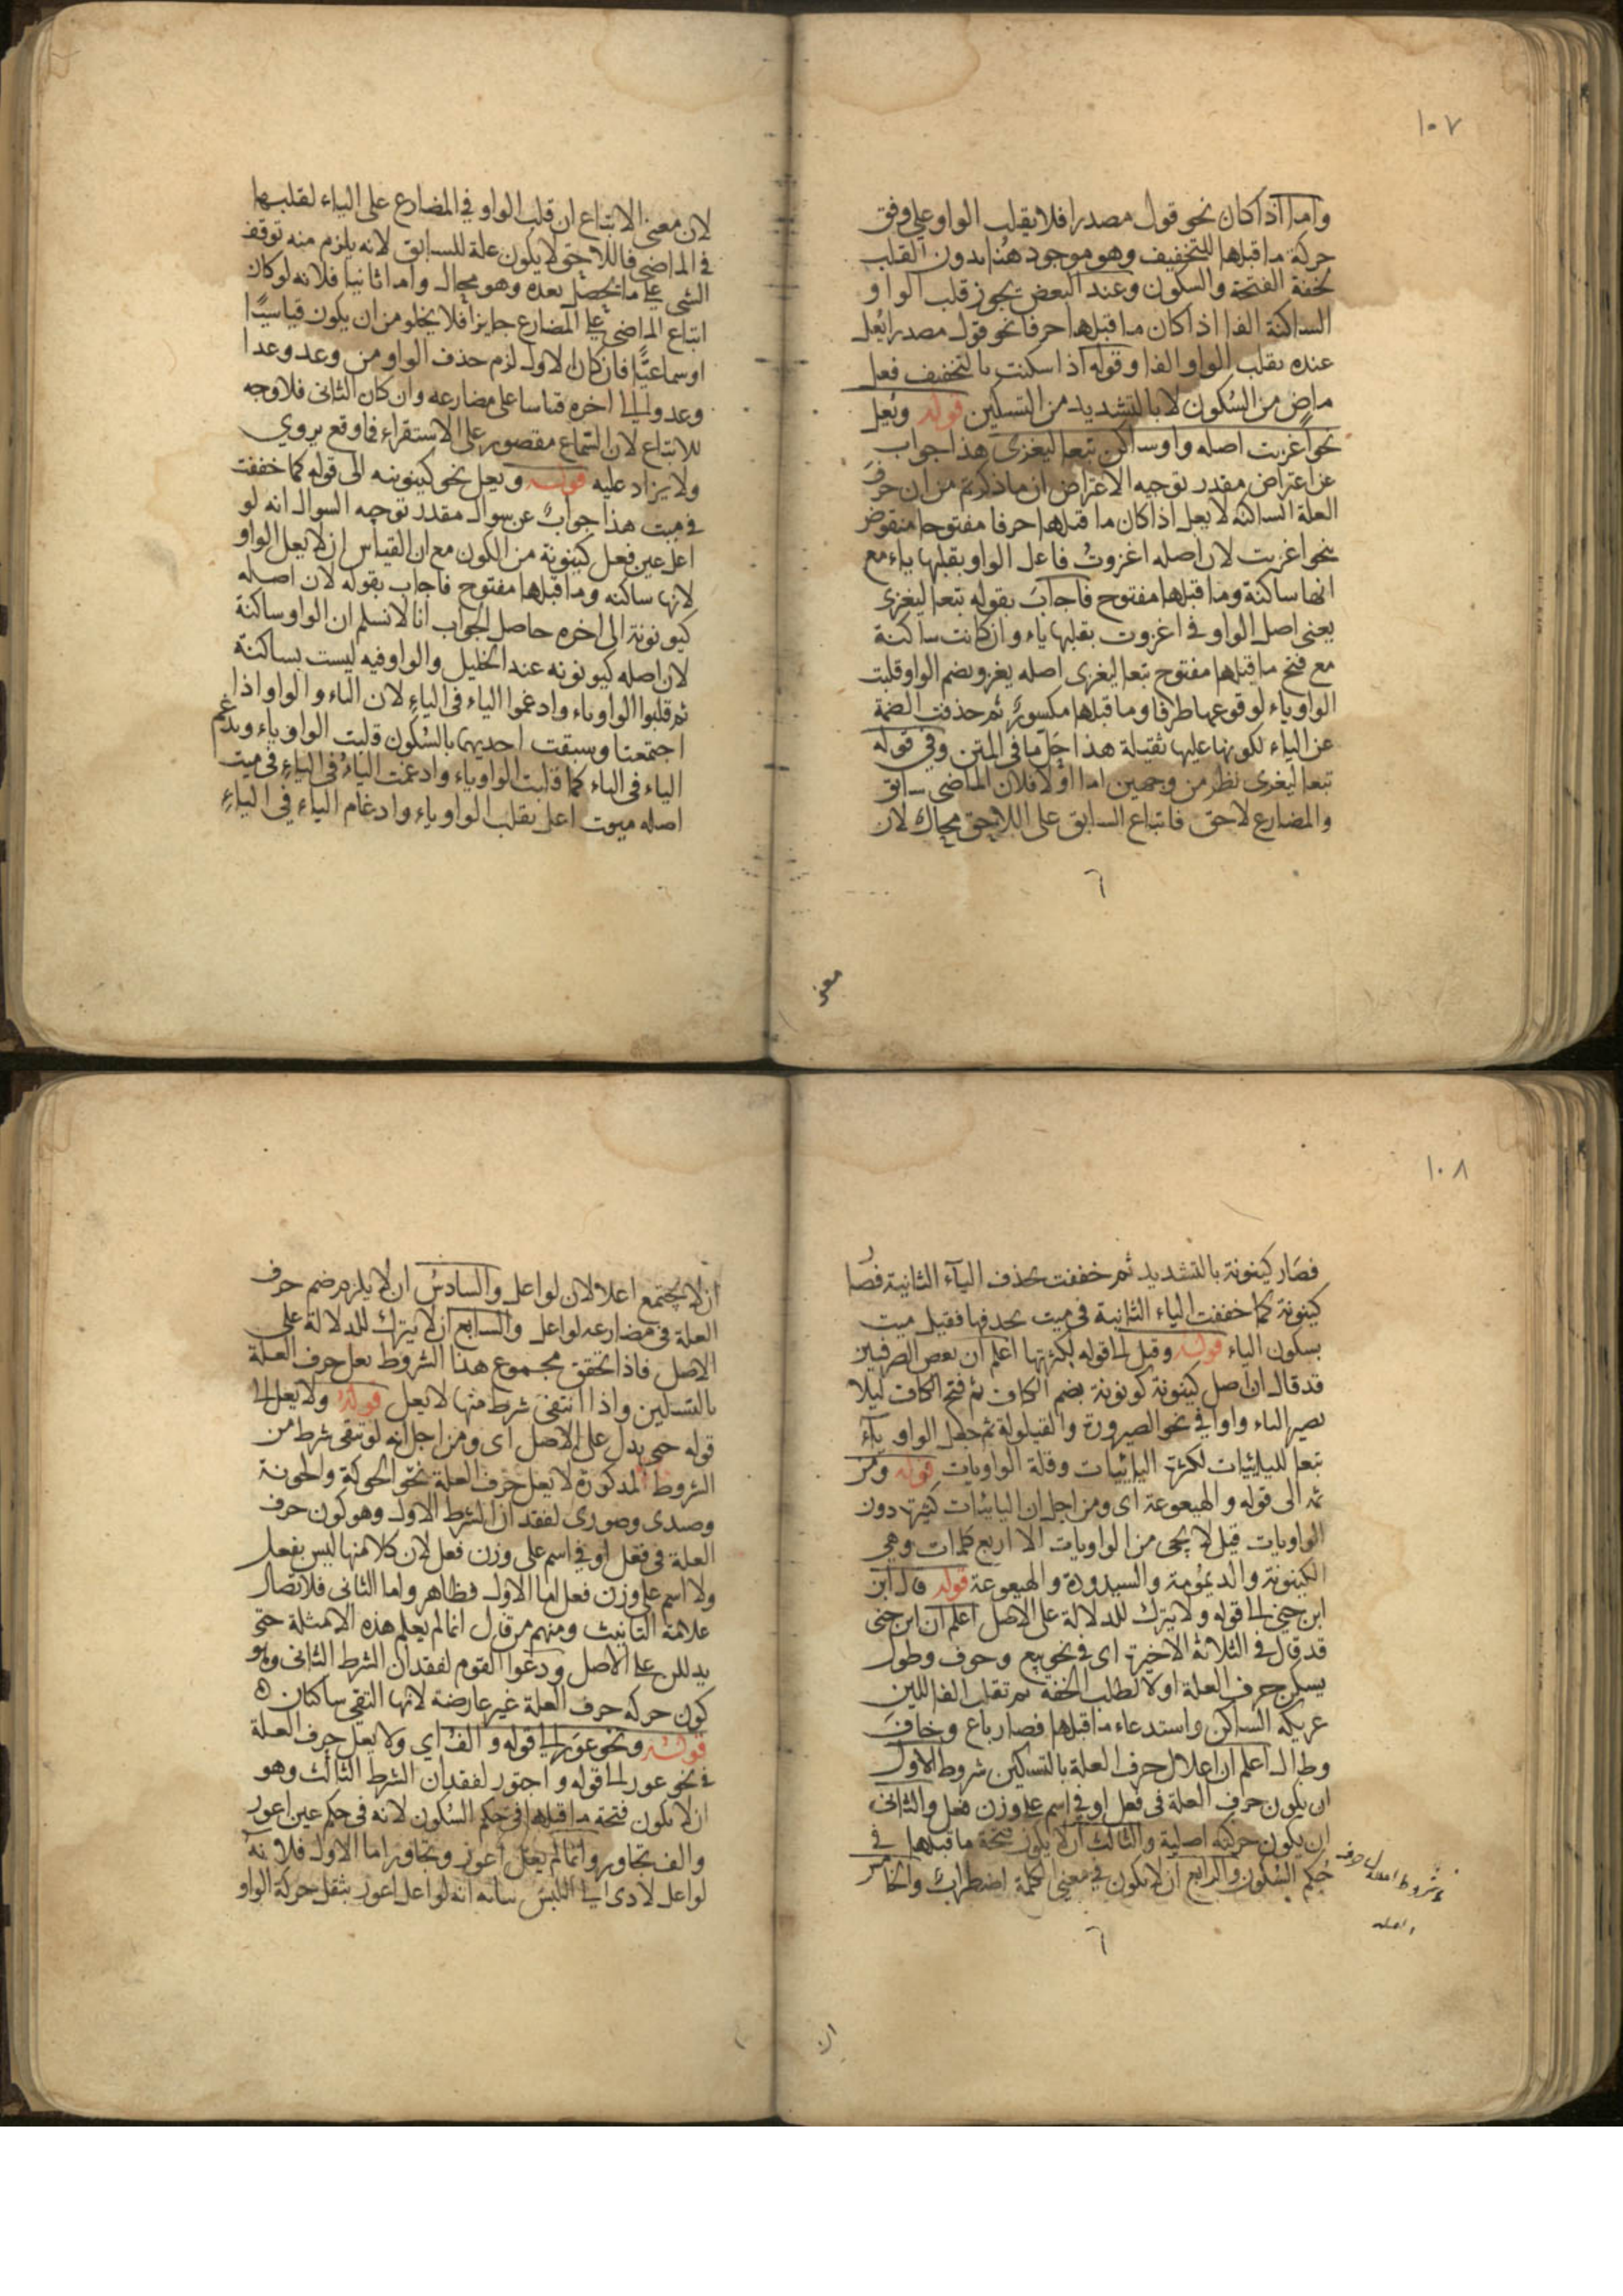 ١٠٧
واما اذا كان نحو قول مصدرا فلا يقلب الواو على وفق
حركة ما قبلها للتخفيف وهو موجود هنا بدون القلب
لخفة الفتحة والسكون وعند البعض يجوز قلب الواو
الساكنة الفا اذا كان ما قبلها حرفا نحو قول مصدرا يعل
عنده بقلب الواو الفا وقوله اذا سكنت بالتخفيف فعل
ماض من السكون لا بالتشديد من التسكين قوله ويعل
نحو اغزيت اصله واو ساكن تبعا ليغزى هذا جواب
عن اعتراض مقدر توجيه الاعتراض ان ما ذكرتم من ان حرف
العلة الساكنة لا يعل اذا كان ما قبلها حرفا مفتوحا منقوض
بنحو اغزيت لان اصله اغزوت فاعل الواو بقلبها ياء مع
انها ساكنة وما قبلها مفتوح فاجاب بقوله تبعا ليغزى
يعنى اصل الواو فى اغزوت بقلبها ياء وان كانت ساكنة
مع فتح ما قبلها مفتوح تبعا ليغزى اصله يغزو بضم الواو قلبت
الواو ياء لوقوعها طرفا وما قبلها مكسور ثم حذفت الضمة
عن الياء لكونها عليها ثقيلة هذا حل ما فى المتن وفى قوله
تبعا ليغزى نظر من وجهين اما اولا فلان الماضى سابق
والمضارع لاحق فاتباع السابق على اللاحق محال لان
٦
معنى
لان معنى الاتباع ان قلب الواو فى المضارع على الياء لقلبها
فى الماضى فاللاحق لا يكون علة للسابق لانه يلزم منه توقف
الشى على ما يحصل بعده وهو محال واما ثانيا فلانه لو كان
اتباع الماضى على المضارع جايزا فلا يخلو من ان يكون قياسيا
او سماعيا فان كان الاول لزم حذف الواو من وعد وعدا
وعدوا الى اخره قياسا على مضارعه وان كان الثانى فلا وجه
للاتباع لان السماع مقصور على الاستقراء فما وقع يروى
ولا يزاد عليه قوله ويعل نحو كينونة الى قوله كما خففت
فى ميت هذا جواب عن سوال مقدر توجيه السوال انه لو
اعل عين فعل كينونة من الكون مع ان القياس ان لا يعل الواو
لانها ساكنه وما قبلها مفتوح فاجاب بقوله لان اصله
كيونونة الى اخره حاصل الجواب انا لا نسلم ان الواو ساكنة
لان اصله كيونونه عند الخليل والواو فيه ليست بساكنة
ثم قلبوا الواو ياء وادغموا الياء فى الياء لان الياء والواو اذا
اجتمعتا وسبقت احديهما بالسكون قلبت الواو ياء ويدغم
الياء فى الياء كما قلبت الواو ياء وادغمت الياء فى الياء فى ميت
اصله ميوت اعل بقلب الواو ياء وادغام الياء فى الياء
١٠٨
فصار كينونة بالتشديد ثم خففت بحذف الياء الثانية فصار
كينونة كما خففت الياء الثانية فى ميت بحدفها فقيل ميت
بسكون الياء قوله وقيل الى قوله لكثرتها اعلم ان بعض الصرفيين
قد قال ان اصل كينونة كونونة بضم الكاف ثم فتح الكاف ليلا
يصير الياء واوا فى نحو الصيرورة والقيلولة ثم جعل الواو ياء
تبعا لليائيات لكثرة اليائيات وقلة الواويات قوله ومن
ثم الى قوله والهيعوعة اى ومن اجل ان اليائيات كثيرة دون
الواويات قيل لا يجى من الواويات الا اربع كلمات وهى
الكينونة والديمومة والسيدودة والهيعوعة قوله قال ابن
ابن جنى الى قوله ولا يترك للدلالة على الاصل اعلم ان ابن جنى
قد قال فى الثلاثة الاخيرة اى فى نحو بيع وخوف وطول
يسكن حرف العلة اولا لطلب الخفة ثم تقلب الفا للين
عريكه الساكن واستدعاء ما قبلها فصار باع وخاف
وطال اعلم ان اعلال حرف العلة بالتسكين شروط الاول
ان يكون حرف العلة فى فعل او فى اسم على وزن فعل والثانى
ان يكون حركته اصلية والثالث ان لا يكون فتحة ما قبلها فى
حكم السكون والرابع ان لا يكون فى معنى الكلمة اضطراب والخامس
٦
ان
ان لا يجتمع اعلالان لو اعل والسادس ان لا يلزم ضم حرف
العلة فى مضارعه لو اعل والسابع ان لا يترك للدلالة على
الاصل فاذا تحقق مجموع هذا الشروط يعل حرف العلة
بالتسكين واذا انتفى شرط منها لا يعل قوله ولا يعل الى
قوله حتى يدل على الاصل اى ومن اجل انه لو تنقى شرط من
الشروط المذكورة لا يعل حرف العلة نحو الحوكة والخونة
وصدى وصورى لفقدان الشرط الاول وهو كون حرف
العلة فى فعل او فى اسم على وزن فعل لان كلا منها ليس بفعل
ولا اسم على وزن فعل اما الاول فظاهر واما الثانى فلاتصال
علامة التانيث ومنهم من قال انما لم يعل هذه الامثلة حتى
يدللن على الاصل ودعوا القوم لفقدان الشرط الثانى وهو
كون حركه حرف العلة غير عارضة لانها التقى ساكنان
قوله ونحو عور الى قوله والف اى ولا يعل حرف العلة
فى نحو عور الى قوله واجتور لفقدان الشرط الثالث وهو
ان لا يكون فتحة ما قبلها فى حكم السكون لانه فى حكم عين اعور
والف تجاور وانما لم يعل اعور وتجاور اما الاول فلانه
لو اعل لادى الى اللبس بيانه انه لو اعل اعور بنقل حركة الواو